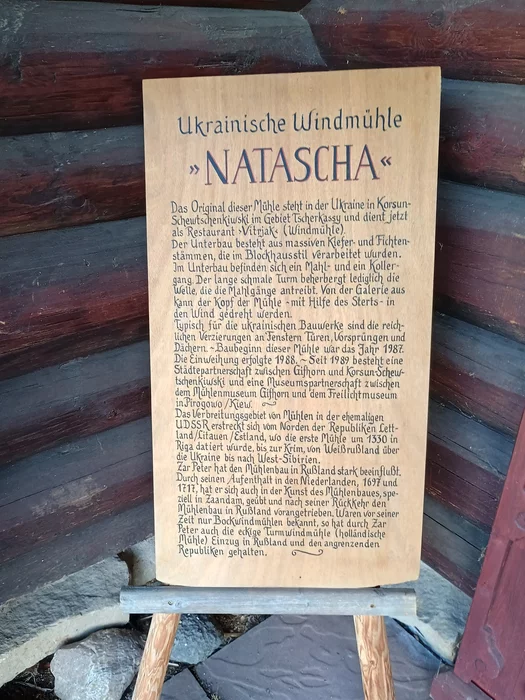 Ukrainische Windmühle
»NATASCHA«
Das Original dieser Mühle steht in der Ukraine in Korsun-
Schewtschenkiwski im Gebiet Tscherkassy und dient jetzt
als Restaurant ›Vitrjak‹ (Windmühle).
Der Unterbau besteht aus massiven Kiefer- und Fichten-
stämmen, die im Blockhausstil verarbeitet wurden.
Im Unterbau befinden sich ein Mahl- und ein Koller-
gang. Der lange schmale Turm beherbergt lediglich die
Welle, die die Mahlgänge antreibt. Von der Galerie aus
kann der Kopf der Mühle - mit Hilfe des Sterts - in
den Wind gedreht werden.
Typisch für die ukrainischen Bauwerke sind die reich-
lichen Verzierungen an Fenstern Türen, Vorsprüngen und
Dächern. ~ Baubeginn dieser Mühle war das Jahr 1987.
Die Einweihung erfolgte 1988. ~ Seit 1989 besteht eine
Städtepartnerschaft zwischen Gifhorn und Korsun-Schew-
tschenkiwski und eine Museumspartnerschaft zwischen
dem Mühlenmuseum Gifhorn und dem Freilichtmuseum
in Pirogowo/Kiew.
Das Verbreitungsgebiet von Mühlen in der ehemaligen
UDSSR erstreckt sich vom Norden der Republiken Lett-
land/Litauen/Estland, wo die erste Mühle um 1330 in
Riga datiert wurde, bis zur Krim, von Weißrußland über
die Ukraine bis nach West-Sibirien.
Zar Peter hat den Mühlenbau in Rußland stark beeinflußt.
Durch seinen Aufenthalt in den Niederlanden, 1697 und
1717, hat er sich auch in der Kunst des Mühlenbaues, spe-
ziell in Zaandam, geübt und nach seiner Rückkehr den
Mühlenbau in Rußland vorangetrieben. Waren vor seiner
Zeit nur Bockwindmühlen bekannt, so hat durch Zar
Peter auch die eckige Turmwindmühle (holländische
Mühle) Einzug in Rußland und den angrenzenden
Republiken gehalten.